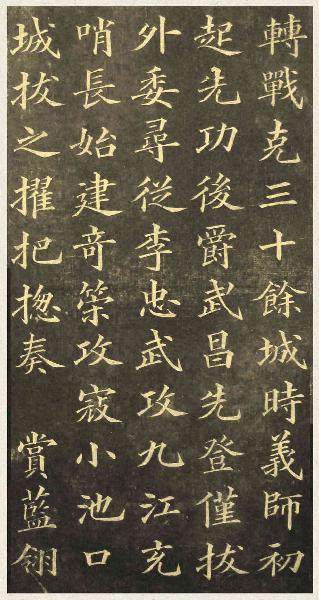 轉戰克三十餘城時義師初
起先功後爵武昌先登僅拔
外委尋從李忠武攻九江充
哨長始建竒策攻寇小池口
城拔之擢把揔奏 賞藍翎